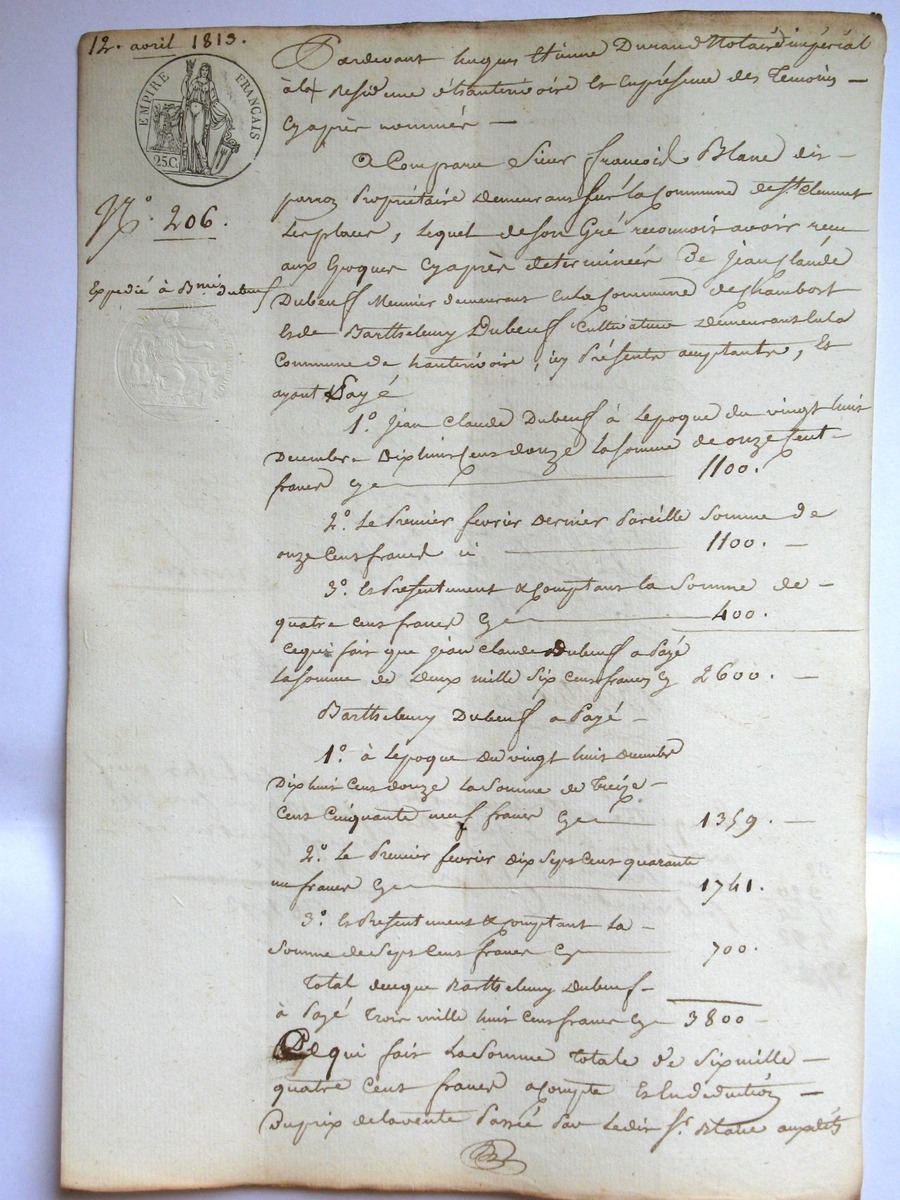 12. avril 1813.
EMPIRE FRANÇAIS
25 C.
N.o 206.
Expedié à B.mi Dubeuf
Pardevant hugues Etienne Durand Notaire impérial
à la Residence d'hauterivoire Et En présence des Temoins —
Cy après nommés —
A Comparu Sieur francois Blanc dit —
perroz Propriétaire demeurant sur la Commune de St. Clement
Les places, Lequel de son Gré reconnoit avoir recu
aux Epoques Cy après determinées De jean Claude
Dubeuf Meunier demeurant En la Commune de Chambost
Et de Barthelemy Dubeuf Cultivateur demeurant En la
Commune de hauterivoire, icy Présents acceptants, Et
ayant Payé
1.o jean Claude Dubeuf à L'epoque du vingt huit
Decembre Dix huit Cent douze La Somme de onze Cent
francs Cy — 1100.
2.o Le Premier février dernier Pareille Somme de
onze Cent francs ci — 1100. —
3.o Et Présentement & Comptant la Somme de —
quatre Cent francs Cy — 400.
Ce qui fait que jean Claude Dubeuf a Payé
La Somme de Deux mille Six Cent francs Cy 2600. —
Barthelemy Dubeuf a Payé —
1.o à L'epoque du vingt huit decembre
Dix huit Cent douze La Somme de Treize —
Cent Cinquante neuf francs Cy — 1359. —
2.o Le Premier février Dix Sept Cent quarante
un francs Cy — 1741.
3.o Et Présentement & Comptant La —
Somme de Sept Cent francs Cy — 700.
Total de ce que Barthelemy Dubeuf —
à Payé Trois mille huit Cent francs Cy — 3800 —
Ce qui fait La Somme Totale de Six mille —
quatre Cent francs acompte Et En deduction —
Du prix de la vente Passée Par Ledit Sr. Blanc auxdits